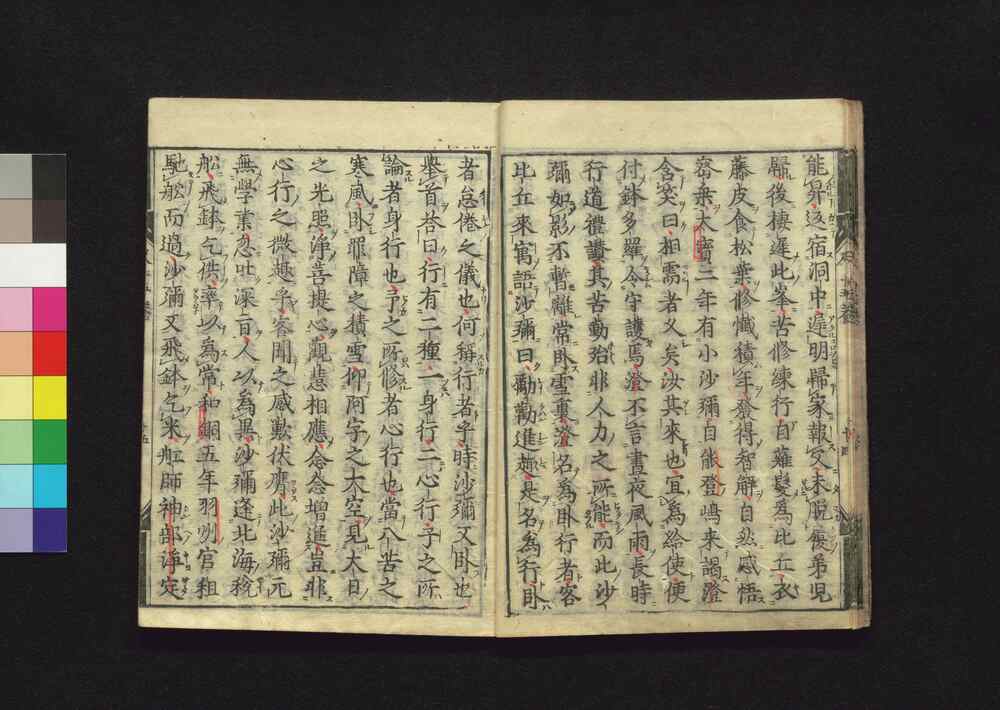 能昇返宿洞中遲明歸家報父未脫履弟兄
歸後棲遲此峯苦修練行自薙髮為比丘衣
藤皮食松葉修懺積年發得智解自然感悟
密乘大寶二年有小沙彌自能登嶋来謁澄
含笑曰相需者乂矣汝其來也宜為給使便
付鉢多羅令守護焉澄不言晝夜風雨長時
行道禮讃其苦動殆非人力之所能而此沙
彌如影不暫離常臥雪裏澄名為臥行者客
比丘來寓語沙彌曰勵勸進趣是名為行臥
者怠倦之儀也何稱行者乎時沙彌又臥也
擧首荅曰行有二種一身行二心行子之所
論者身行也予之所修者心行也當八苦之
寒風臥罪障之積雪仰阿字之大空見大日
之光照淨菩提心觀悲相應念念增進豈非
心行之微趣乎客聞之感歎伏膺此沙彌元
無學業忽吐深旨人以為異沙彌逢北海稅
舩飛鉢乞供率以為常和銅五年羽州官租
馳舩而過沙彌又飛鉢乞米舩師神部淨定